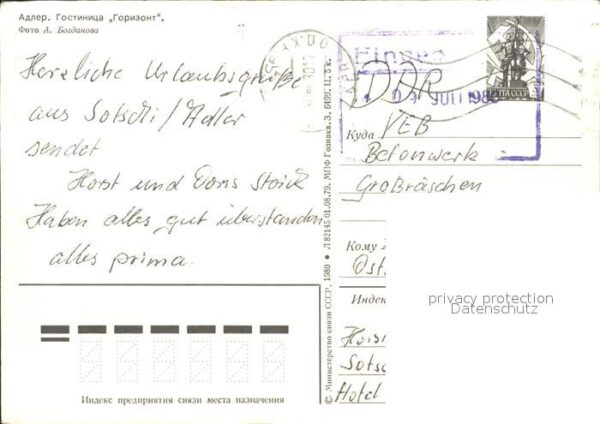 Адлер. Гостиница „Горизонт“.
Фото А. Богданова
Herzliche Urlaubsgrüße
aus Sotschi/Adler
sendet
Horst und Doris Storck
Haben alles gut überstanden
alles prima.
Индекс предприятия связи места назначения
© Министерство связи СССР, 1980 ● Л 82145 01.08.79. МПФ Гознака. З. 6490. Ц. 5 к.
Eingeg
09. JULI 198
ПОЧТА СССР
DDR
Куда VEB
Betonwerk
Großräschen
Кому
Ost
privacy protection
Datenschutz
Индекс
Horst
Sotsc
Hotel